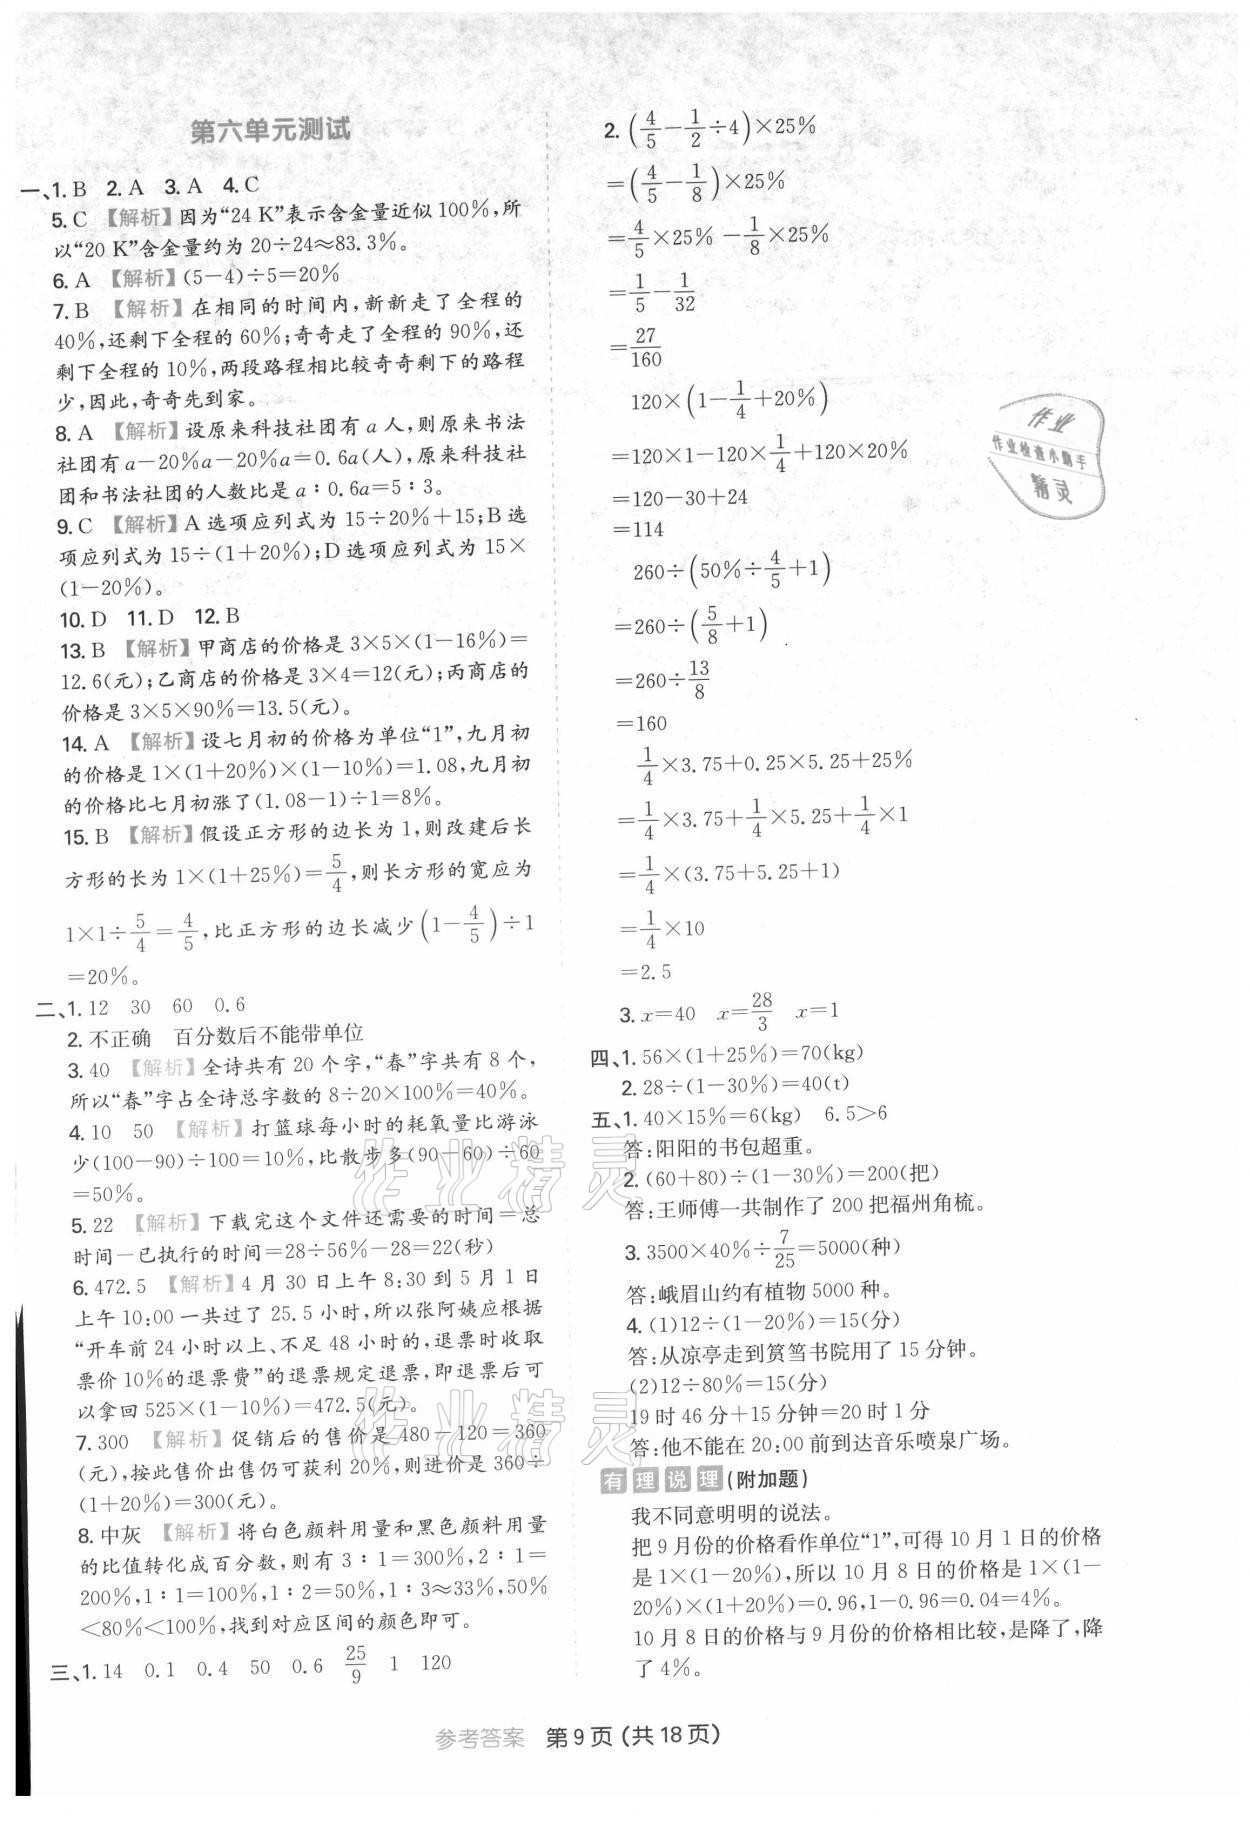 第六单元测试
一、1. B 2. A 3. A 4. C
5. C 【解析】因为“24 K”表示含金量近似100%,所
以“20 K”含金量约为 20÷24≈83.3%。
6. A 【解析】(5－4)÷5＝20%
7. B 【解析】在相同的时间内,新新走了全程的
40%,还剩下全程的 60%;奇奇走了全程的 90%,还
剩下全程的 10%,两段路程相比较奇奇剩下的路程
少,因此,奇奇先到家。
8. A 【解析】设原来科技社团有 a 人,则原来书法
社团有 a－20%a－20%a＝0.6a(人),原来科技社
团和书法社团的人数比是 a∶0.6a＝5∶3。
9. C 【解析】A 选项应列式为 15÷20%＋15;B 选
项应列式为 15÷(1＋20%);D 选项应列式为 15×
(1－20%)。
10. D 11. D 12. B
13. B 【解析】甲商店的价格是 3×5×(1－16%)＝
12.6(元);乙商店的价格是 3×4＝12(元);丙商店的
价格是 3×5×90%＝13.5(元)。
14. A 【解析】设七月初的价格为单位“1”,九月初
的价格是 1×(1＋20%)×(1－10%)＝1.08,九月初
的价格比七月初涨了(1.08－1)÷1＝8%。
15. B 【解析】假设正方形的边长为 1,则改建后长
方形的长为 1×(1＋25%)＝5/4,则长方形的宽应为
1×1÷5/4＝4/5,比正方形的边长减少(1－4/5)÷1
＝20%。
二、1. 12 30 60 0.6
2. 不正确 百分数后不能带单位
3. 40 【解析】全诗共有 20 个字,“春”字共有 8 个,
所以“春”字占全诗总字数的 8÷20×100%＝40%。
4. 10 50 【解析】打篮球每小时的耗氧量比游泳
少(100－90)÷100＝10%,比散步多(90－60)÷60
＝50%。
5. 22 【解析】下载完这个文件还需要的时间＝总
时间－已执行的时间＝28÷56%－28＝22(秒)
6. 472.5 【解析】4 月 30 日上午 8:30 到 5 月 1 日
上午 10:00 一共过了 25.5 小时,所以张阿姨应根据
“开车前 24 小时以上、不足 48 小时的,退票时收取
票价 10%的退票费”的退票规定退票,即退票后可
以拿回 525×(1－10%)＝472.5(元)。
7. 300 【解析】促销后的售价是 480－120＝360
(元),按此售价出售仍可获利 20%,则进价是 360÷
(1＋20%)＝300(元)。
8. 中灰 【解析】将白色颜料用量和黑色颜料用量
的比值转化成百分数,则有 3∶1＝300%,2∶1＝
200%,1∶1＝100%,1∶2＝50%,1∶3≈33%,50%
＜80%＜100%,找到对应区间的颜色即可。
三、1. 14 0.1 0.4 50 0.6 25/9 1 120
2. (4/5－1/2÷4)×25%
＝(4/5－1/8)×25%
＝4/5×25%－1/8×25%
＝1/5－1/32
＝27/160
120×(1－1/4＋20%)
＝120×1－120×1/4＋120×20%
＝120－30＋24
＝114
260÷(50%÷4/5＋1)
＝260÷(5/8＋1)
＝260÷13/8
＝160
1/4×3.75＋0.25×5.25＋25%
＝1/4×3.75＋1/4×5.25＋1/4×1
＝1/4×(3.75＋5.25＋1)
＝1/4×10
＝2.5
3. x＝40 x＝28/3 x＝1
四、1. 56×(1＋25%)＝70(kg)
2. 28÷(1－30%)＝40(t)
五、1. 40×15%＝6(kg) 6.5＞6
答:阳阳的书包超重。
2. (60＋80)÷(1－30%)＝200(把)
答:王师傅一共制作了 200 把福州角梳。
3. 3500×40%÷7/25＝5000(种)
答:峨眉山约有植物 5000 种。
4. (1)12÷(1－20%)＝15(分)
答:从凉亭走到筼筜书院用了 15 分钟。
(2)12÷80%＝15(分)
19 时 46 分＋15 分钟＝20 时 1 分
答:他不能在 20:00 前到达音乐喷泉广场。
有理说理(附加题)
我不同意明明的说法。
把 9 月份的价格看作单位“1”,可得 10 月 1 日的价格
是 1×(1－20%),所以 10 月 8 日的价格是 1×(1－
20%)×(1＋20%)＝0.96,1－0.96＝0.04＝4%。
10 月 8 日的价格与 9 月份的价格相比较,是降了,降
了 4%。
作业
作业检查小助手
精灵
作业精灵
作业精灵
参考答案 第 9 页 (共 18 页)